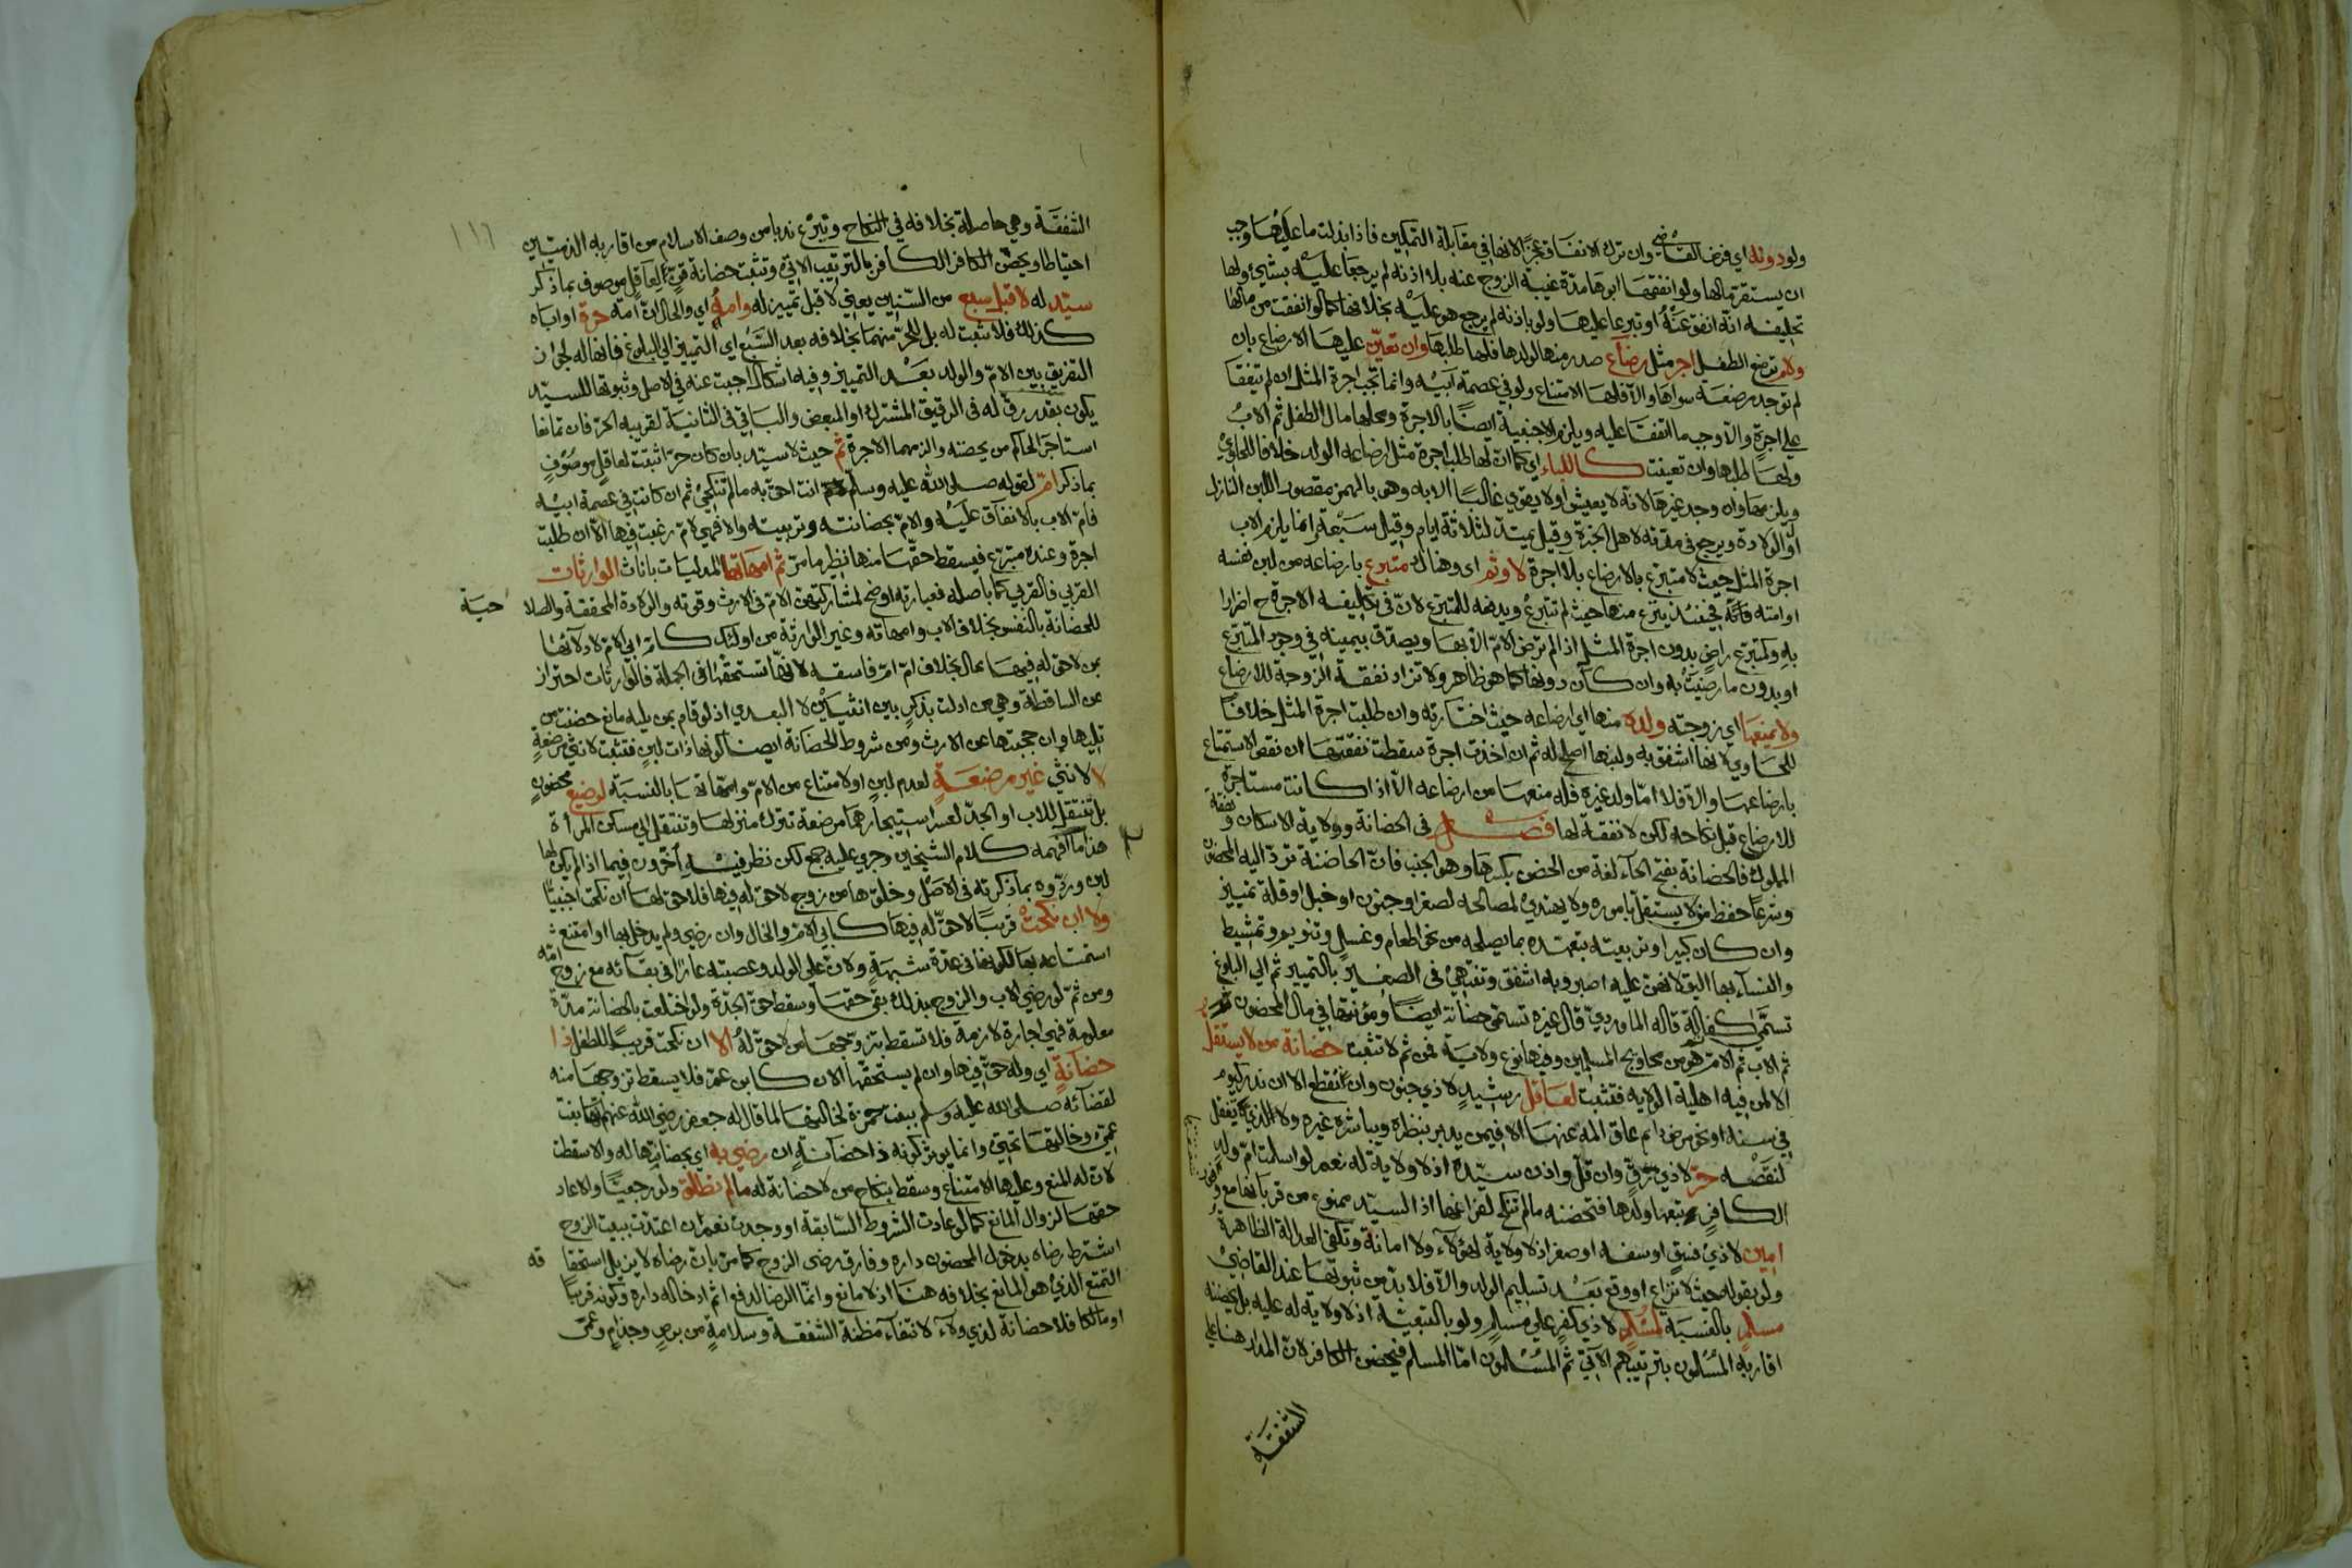 ولو دونه اي فرض القاضي وان ترك الانفاق عجزًا لانها في مقابلة التمكين فاذا بذلت ما عليها وجب
ان يستقر مالها ولو انفقها ابوها مدة غيبة الزوج عنه بلا اذنه لم يرجعا عليه بشيئ ولها
تحليفه انه انفق عنه او تبرعا عليها ولو باذنه لم يرجع هو عليه بخلافها كما لو انفقت من مالها
ولام ترضع الطفل اجر مثل رضاع صدر منها لولدها فلها طلبها وان تعين عليها الارضاع بان
لم توجد مرضعة سواها والا فلها الامتناع ولو في عصمة ابيه وانما تجب اجرة المثل ان لم يتفقا
علي اجرة والا وجب ما اتفقا عليه ويلزم الاجنبية ايضًا بالاجرة ومحلها مال الطفل ثم الاب
ولها طلبها وان تعينت كاللباء اي كما ان لها طلب اجرة مثل ارضاعه الولد خلافا للحاوي
ويلزمها وان وجد غيرها لانه لا يعيش او لا يقوي غالبًا الا به وهو بالهمز مقصور اللبن النازل
اول الولادة ويرجع في مدته لاهل الخبرة وقيل يمتد لثلاثة ايام وقيل سبعة انما يلزم الاب
اجرة المثل حيث لا متبرع بالارضاع بلا اجرة لا وثم اي وهناك متبرع بارضاعه من لبن نفسه
او امته فانه حينئذ ينزع منها حيث لم تتبرع ويدفعه للمتبرع لان في تكليفه الاجرة ح اضرارا
به وكمتبرع راضٍ بدون اجرة المثل اذا لم ترض الام الا بها ويصدق بيمينه في وجود المتبرع
او بدون ما رضيت به وان كان دونها كما هو ظاهر ولا تزاد نفقة الزوجة للارضاع
ولا يمنعها اي زوجته ولده منها اي ارضاعه حيث اختارته وان طلبت اجرة المثل خلافًا
للحاوي لانها اشفق به ولبنها اصلح له ثم ان اخذت اجرة سقطت نفقتها ان نقص الاستمتاع
بارضاعها والا فلا اما ولد غيره فله منعها من ارضاعه الا اذا كانت مستاجرة
للارضاع قبل نكاحه لكن لا نفقة لها فصل في الحضانة وولاية الاسكان ونفقة
المملوك فالحضانة بفتح الحاء لغة من الحضن بكسرها وهو الجنب فان الحاضنة ترد اليه المحضون
وشرعًا حفظ من لا يستقل بامره ولا يهتدي لمصالحه لصغر او جنون او خبل او قلة تمييز
وان كان كبيرا وتربيته بتعهده بما يصلحه من نحو اطعام وغسل وتنويم وتمشيط
والنساء بها اليق لانهن عليه اصبر وبه اشفق وتنتهي في الصغير بالتمييز ثم الي البلوغ
تسمي كفالة قاله الماوردي وقال غيره تسمي حضانة ايضًا ومؤنتها في مال المحضون
ثم الاب ثم الام ثم هو من محاويج المسلمين وفيها نوع ولاية فمن ثم لا تثبت حضانة من لا يستقل
الا لمن فيه اهلية الولاية فتثبت لعاقل رشيد لا ذي جنون وان انقطع الا ان ندر كيوم
في سنة او نحو مرض دايم عاق المه عنها الا فيمن يدبر بنظره ويباشره غيره ولا لذي تغفل
لنقصه حر لا ذي رق وان قل واذن سيده اذ لا ولاية له نعم لو اسلمت ام ولد
الكافر تبعها ولدها فتحضنه ما لم تنكح لفراغها اذ السيد ممنوع من قربانها مع وفور
امين لا ذي فسق او سفه او صغر اذ لا ولاية لهؤلاء ولا امانة وتكفي العدالة الظاهرة
ولو بقوله حيث لا نزاع او وقع بعد تسليم الولد والا فلا بد من ثبوتها عند القاضي
مسلم بالنسبة لمسلم لا ذي كفر علي مسلم ولو بالتبعية اذ لا ولاية له عليه بل يحضنه
اقاربه المسلمون بترتيبهم الاتي ثم المسلمون اما المسلم فيحضن الكافر لان المدار هنا علي
الشفقة
١١٦
الشفقة وهي حاصلة بخلافه في النكاح وينزع ندبا من وصف الاسلام من اقاربه الذميين
احتياطا ويحضن الكافر الكافر بالترتيب الاتي وتثبت حضانة قن لعاقل موصوف بما ذكر
سيد له لا قبل سبع من السنين يعني لا قبل تمييزله وامه اي والحال ان امه حرة او اباه
كذلك فلا تثبت له بل للحر منهما بخلافه بعد السبع اي التمييز الي البلوغ فانها له لجواز
التفريق بين الام والولد بعد التمييز وفيه اشكال اجبت عنه في الاصل وثبوتها للسيد
يكون بقدر رق له في الرقيق المشترك او المبعض والباقي في الثانية لقريبه الحر فان تمانعا
استاجر الحاكم من يحضنه والزمهما الاجرة ثم حيث لا سيد بان كان حرا تثبت لعاقل موصوف
بما ذكر ام لقوله صلى الله عليه وسلم انت احق به ما لم تنكحي ثم ان كانت في عصمة ابيه
قام الاب بالانفاق عليه والام بحضانته وتربيته والا فهي لام رغبت فيها الا ان طلبت
اجرة وعنده متبرع فيسقط حقها منها نظير ما مر ثم امهاتها المدليات باناث الوارثات
القربي فالقربي كما باصله فعبارته اوضح لمشاركتهن الام في الارث وقوته والولادة المحققة والصلا حية
للحضانة بالنفس بخلاف الاب وامهاته وغير الوارثة من اولئك كام ابي الام لادلائها
بمن لا حق له فيها بحال بخلاف ام ام فاسقة لانها تستحقها في الجملة فالوارثات احتراز
عن الساقطة وهي من ادلت بذكر بين انثيين لا البعدي اذ لو قام بمن يليه مانع حضنت من
تليها وان حجبتها عن الارث ومن شروط الحضانة ايضا كونها ذات لبن فتثبت لانثي مرضعة
لا لانثي غير مرضعة لعدم لبن او لامتناع من الام وامهاتها بالنسبة لرضيع محضون
بل تنتقل للاب او الجد لعسر استيجارهما مرضعة تترك منزلها وتنتقل الي مسكن المراة
هذا ما افهمه كلام الشيخين وجري عليه جمع لكن نظر فيه اخرون فيما اذا لم يكن لها
لبن وردوه بما ذكرته في الاصل وخلوها من زوج لا حق له فيها فلا حق لها ان نكحت اجنبيًا
ولا ان نكحت قريبًا لا حق له فيها كابي الام والخال وان رضي ولم يدخل بها او امتنع
استمتاعه بها لكونها في عدة شبهة ولان علي الولد وعصبته عارًا في بقائه مع زوج امه
ومن ثم لو رضي الاب والزوج بذلك بقي حقها وسقط حق الجدة ولو اختلعت بالحضانة مدة
معلومة فهي اجارة لازمة فلا تسقط بتزوجها من لا حق له الا ان نكحت قريبًا للطفل ذا
حضانة اي وله حق فيها وان لم يستحقها الان كابن عم فلا يسقط تزوجها منه
لقضائه صلى الله عليه وسلم ببنت حمزة لخالتها لما قال له جعفر رضي الله عنهما انها بنت
عمي وخالتها تحتي وانما يؤثر كونه ذا حضانة ان رضي به اي بحضانتها له والا سقطت
لان له المنع وعليها الامتناع وسقط بنكاح من لا حضانة له ما لم تطلق ولو رجعيًا والا عاد
حقها لزوال المانع كما لو عادت الشروط السابقة او وجدت نعم ان اعتدت ببيت الزوج
اشترط رضاه بدخول المحضون داره وفارق رضي الزوج كما مر بان رضاه لا يزيل استحقا قه
التمتع الذي هو المانع بخلافه هنا اذ لا مانع وانما الرضا لدفع اثم ادخاله داره وكونه قريبًا
او مالكا فلا حضانة لذي ولاء لانتفاء مظنة الشفقة وسلامة من برص وجذام وعمي